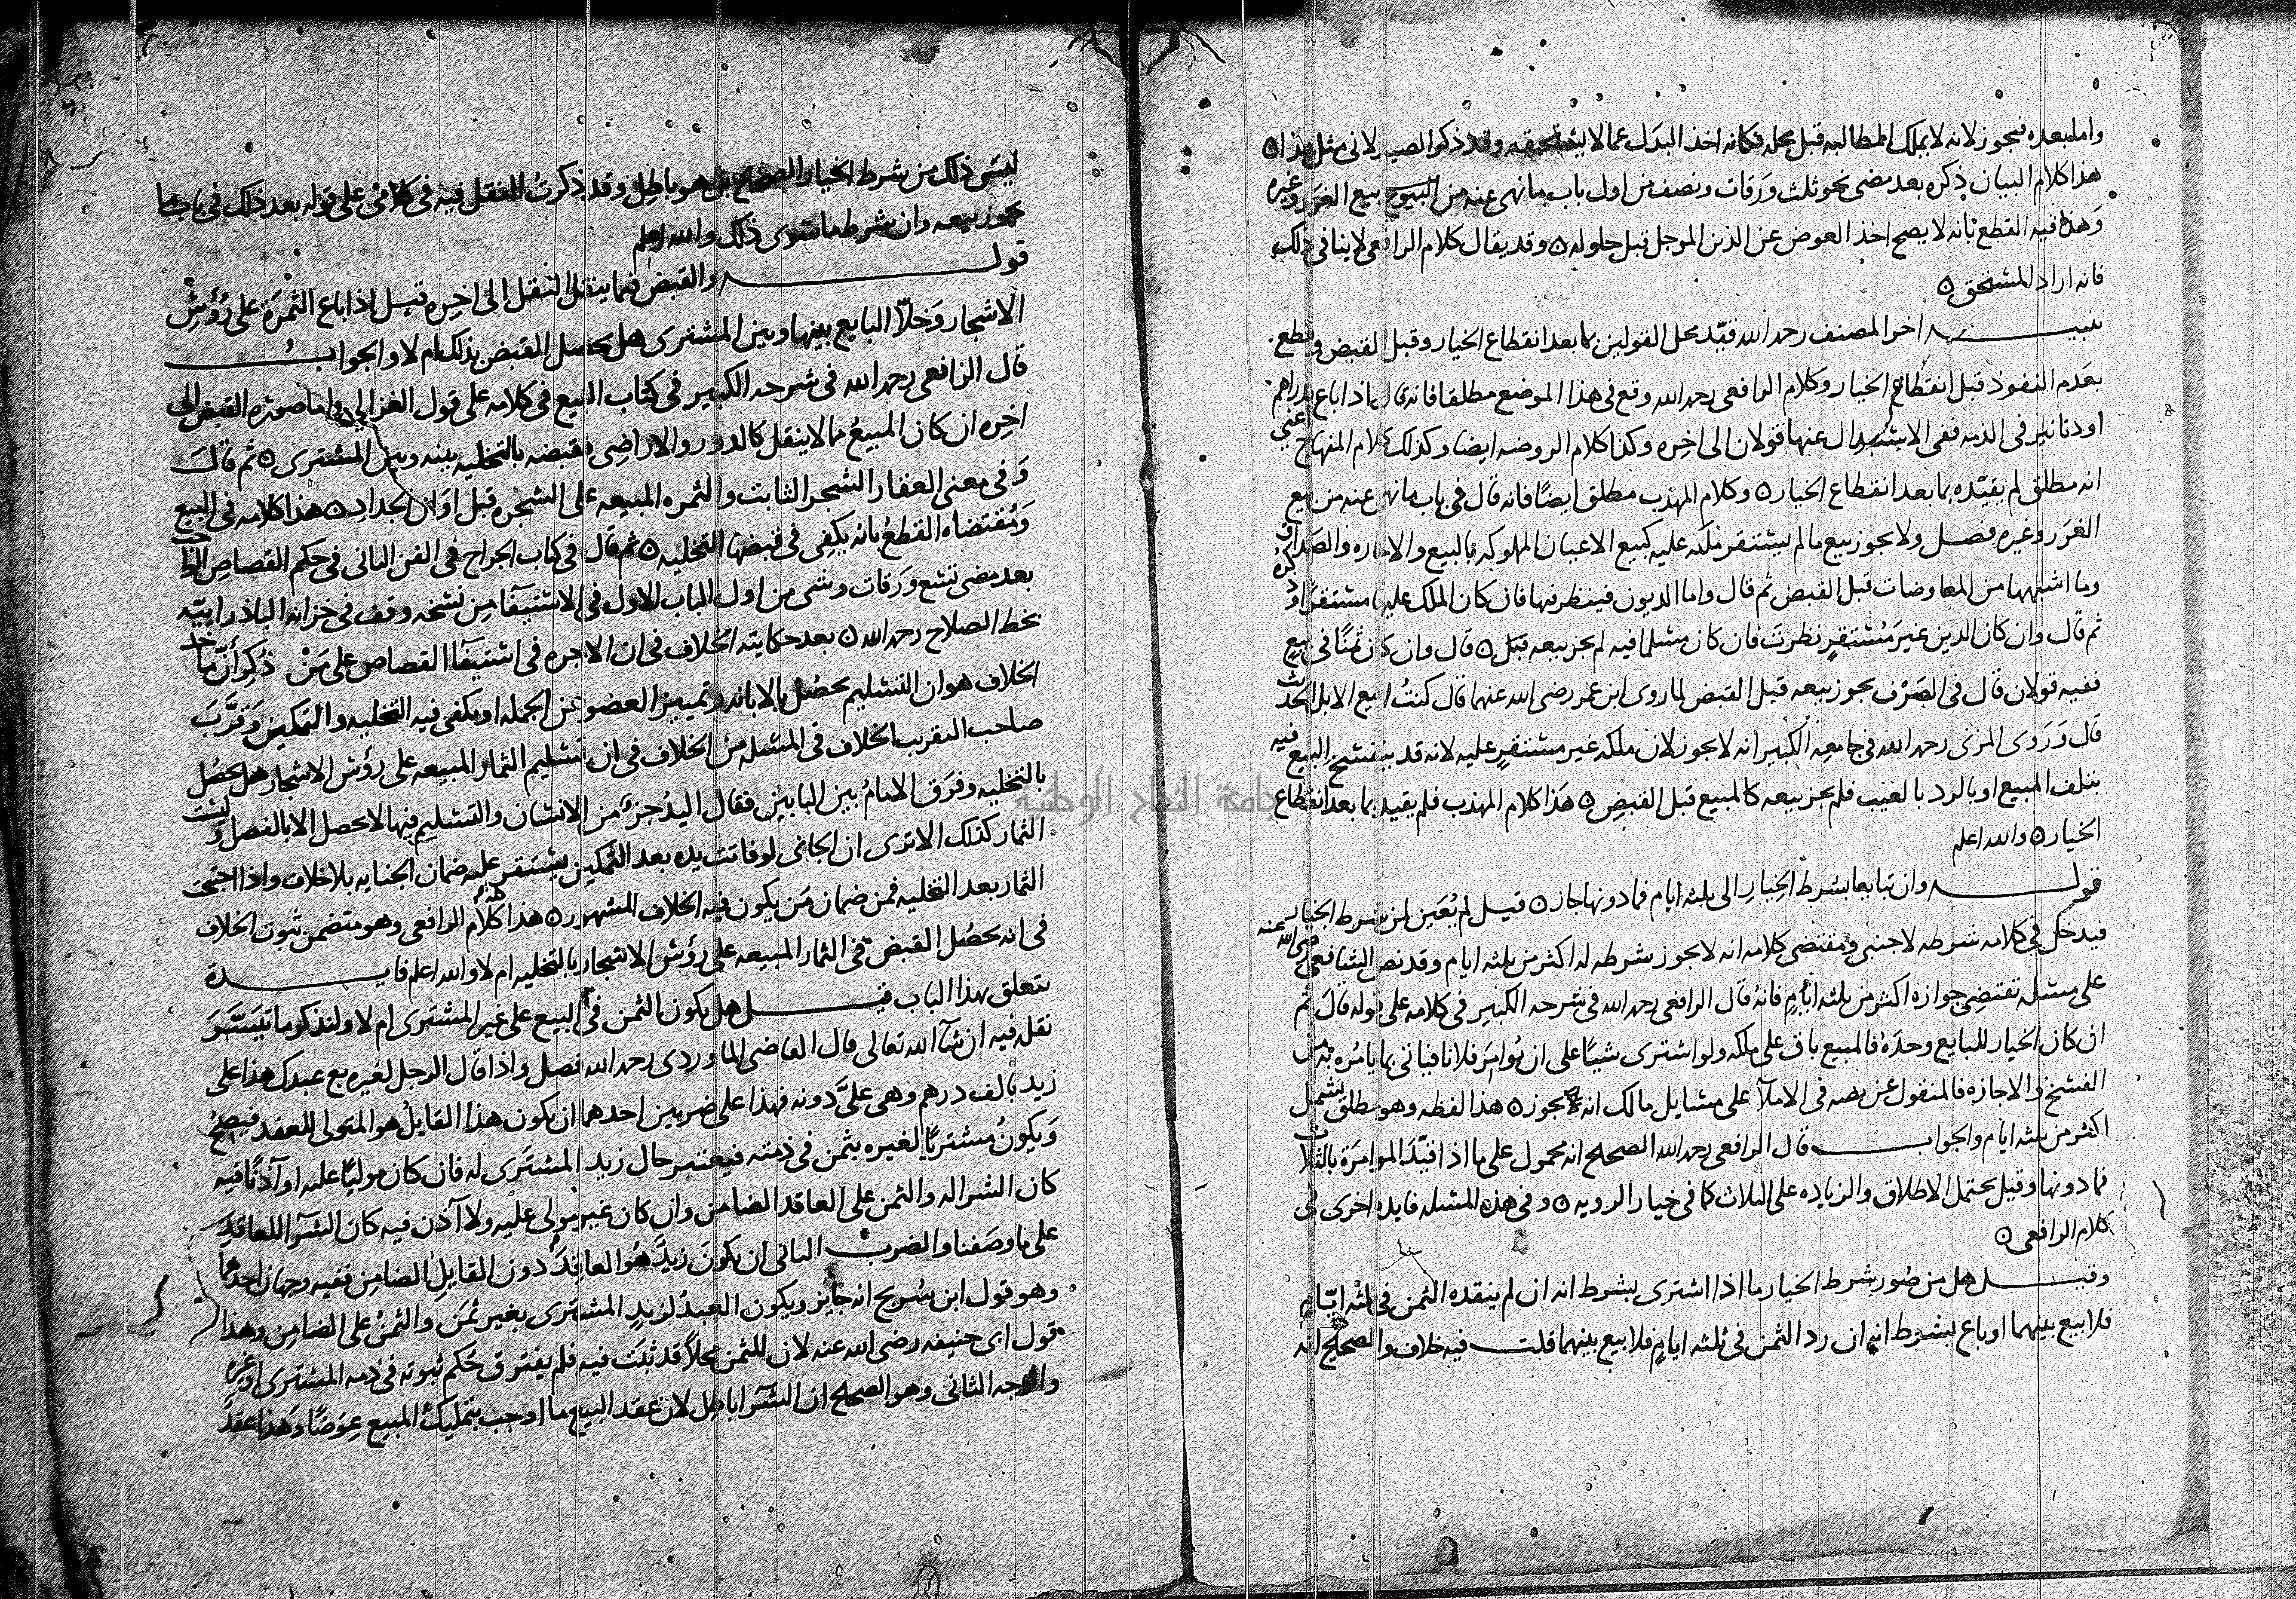 واما بعده فيجوز لانه لا يملك المطالبه قبل محله فكانه اخذ البدل عما لا يستحقه وقد ذكر الصيدلانى مثل هذا ۞
هذا كلام البيان ذكره بعد مضى نحو ثلث ورقات ونصف من اول باب ما نهى عنه من البيوع بيع الغرر وغيره
وهذا فيه القطع بانه لا يصح اخذ العوض عن الدين الموجل قبل حلوله ۞ وقد يقال كلام الرافعى لا ينافى ذلك
فانه اراد المستحق ۞
تنبيه اخر المصنف رحمه الله قيّد محل القولين بما بعد انقطاع الخيار وقبل القبض وقطع
بعدم النفوذ قبل انقطاع الخيار وكلام الرافعى رحمه الله وقع فى هذا الموضع مطلقا فانه قال اذا باع بدراهم
او دنانير فى الذمه ففى الاستبدال عنها قولان الى اخره وكذا كلام الروضه ايضا وكذلك كلام المنهاج اعنى
انه مطلق لم يقيّده بما بعد انقطاع الخيار ۞ وكلام المهذب مطلق ايضًا فانه قال فى باب ما نهى عنه من بيع
الغرر وغيره فصل ولا يجوز بيع ما لم يستقر ملكه عليه كبيع الاعيان المملوكه بالبيع والاجاره والصداق
وما اشبهها من المعاوضات قبل القبض ثم قال واما الديون فينظر فيها فان كان الملك عليها مستقرًا ذكره
ثم قال وان كان الدين غير مُستقرٍ نظرت فان كان مسلما فيه لم يجز بيعه قبل ۞ قال وان كان ثمنًا فى بيع
ففيه قولان قال فى الصَرْف يجوز بيعه قبل القبض لما روى ابن عمر رضى الله عنهما قال كنتُ ابيع الابل الحديث
قال وَرَوى المزنى رحمه الله فى جامعه الكبير انه لا يجوز لان ملكه غير مستقرٍ عليه لانه قد ينفسخ البيع فيه
بتلف المبيع او بالرد بالعيب فلم يجز بيعه كالمبيع قبل القبضِ ۞ هَذا كلام المهذب فلم يقيد بما بعد انقطاع
الخيار ۞ والله اعلم
قوله وان تبايعا بشرط الخِيارِ الى ثلثه ايام فما دونها جاز ۞ قيل لم يُعَين لمن شرط الخيار
فيدخل فى كلامه شرطه لاجنبى ومقتضى كلامه انه لا يجوز شرطه له اكثر من ثلثه ايام وقد نص الشافعى رضى الله عنه
على مسئله تقتضى جوازه اكثر من ثلثه ايامٍ فانه قال الرافعى رحمه الله فى شرحه الكبير فى كلامه على قوله قال ثم
ان كان الخيار للبايع وحدَهُ فالمبيع باق على ملكه ولو اشترى شيئًا على ان يُوامِرَ فلانا فياتى بما يامُره به من
الفسخ والاجازه فالمنقول عن نصه فى الاملآ على مسايل مالك انه يجوز ۞ هذا لفظه وهو مطلق يشمل
اكثر من ثلثه ايام والجواب قال الرافعى رحمه الله الصحيح انه محمول على ما اذا قيّدَ الموامَرَة بالثلاث
فما دونها وقيل يحتمل الاطلاق والزياده على الثلاث كما فى خيار الرويه ۞ وفى هذه المسئله فايده اخرى فى
كلام الرافعى ۞
وقيل هل من صُور شرط الخيار ما اذا اشترى بشرط انه ان لم ينقده الثمن فى ثلثه ايّام
فلا بيع بينهما او باع بشرط انه ان رد الثمن فى ثلثه ايامٍ فلا بيع بينهما قلت فيه خلاف والصحيح انه
ليسَ ذلك من شرط الخيار الصحيح بل هو باطِل وقد ذكرتُ النقل فيه فى كلامى على قوله بعد ذلك فى باب ما
يجوز بيعه وان شرط ما سوى ذلك والله اعلم
قوله والقبض فيما ينقل النقل الى اخِره قيل اذا باع الثمرَة على رُؤُسْ
الاشجار وَخَلّا البايع بينها وبين المشترى هل يحصل القبض بذلك ام لا والجواب
قال الرافعى رحمه الله فى شرحه الكبير فى كتاب البيع فى كلامه على قول الغزالى واما صورة القبض الى
اخِره ان كان المبيعُ مما لا ينقل كالدور والاراضِى فقبضه بالتخليه بينه وبين المشترى ۞ ثم قال
وَفى معنى العقار الشجر الثابت والثمره المبيعه على الشجره قبل اوَان الجدادِ ۞ هذا كلامه فى البيع
وَمُقتضاه القطعُ بانه يكفِى فى قبضها التخليه ۞ ثم قال فى كتاب الجراح فى الفن الثانى فى حكم القصاصِ الواجب
بعد مضى تسع ورَقات وشى من اول الباب الاول فى الاستيفآ من نسخه وقف فى خزانه الباذرايّيه
بخط الصلاح رحمه الله ۞ بعد حكايته الخلاف فى ان الاجره فى استيفآ القصاص على مَنْ ذُكِرَ أنّ ماخذ
الخلاف هو ان التسليم يحصُل بالابانه وتمييز العضو عن الجمله او يكفى فيه التخليه والتمكين وَقرَّبَ
صاحب التقريب الخلاف فى المسئله من الخلاف فى ان تسليم الثمار المبيعه على رؤُس الاشجار هل يحصُل
بالتخليه وفرَق الامامُ بين البابين فقال اليدُ جزءٌ من الانسان والتسليم فيها لا يحصل الا بالفصل وليست
الثمار كذلك الا ترى ان الجانى لو فاتت يده بعد التمكين يستقر عليه ضمان الجنايه بلا خلاف واذا اجتيحت
الثمار بعد التخليه فمن ضمان مَن يكون فيه الخلاف المشهور ۞ هذا كلام الرافعى وهو متضمن ثبوت الخلاف
فى انه يحصُل القبض فى الثمار المبيعه على رؤُس الاشجار بالتخليه ام لا والله اعلم فايدة
تتعلق بهذا الباب قيل هل يكون الثمن فى البيع على غير المشترى ام لا ولنذكر ما تَيَسَّرَ
نقله فيه ان شآ الله تعالى قال القاضى الماوردى رحمه الله فصل واذا قال الرجل لغيره بع عبدك هذا على
زيد بالف درهم وهى علىَّ دونه فهذا على ضربين احدهما ان يكون هذا القايلُ هو المتولى للعقد فيصحُ
وَيكونُ مشتريًا لغيره بثمن فى ذمته فيعتبر حال زيد المشترى له فان كان موليًا عليه او آذنًا فيه
كان الشرا له والثمن على العاقد الضامن وان كان غير مولى عليه ولا آذن فيه كان الشرآ للعاقد
على ما وصَفنا والضرب الثانى ان يكونَ زيدٌ هُو العاقِدُ دون القايل الضامن ففيه وجهان احدهما
وهو قول ابن سُريح انه جايز ويكون العبدُ لزيدٍ المشترى بغير ثمَن وَالثمنُ على الضامِن وهذا
قول ابى حنيفه رضى الله عنه لان للثمن محلاً قد ثبت فيه فلم يفترق حُكم ثبوته فى ذمه المشترى او غيره
والوجه الثانى وهو الصحيح ان الشرآ باطِل لان عقد البيع ما اوجب بتمليك المبيع عِوَضًا وَهذا عقدٌ